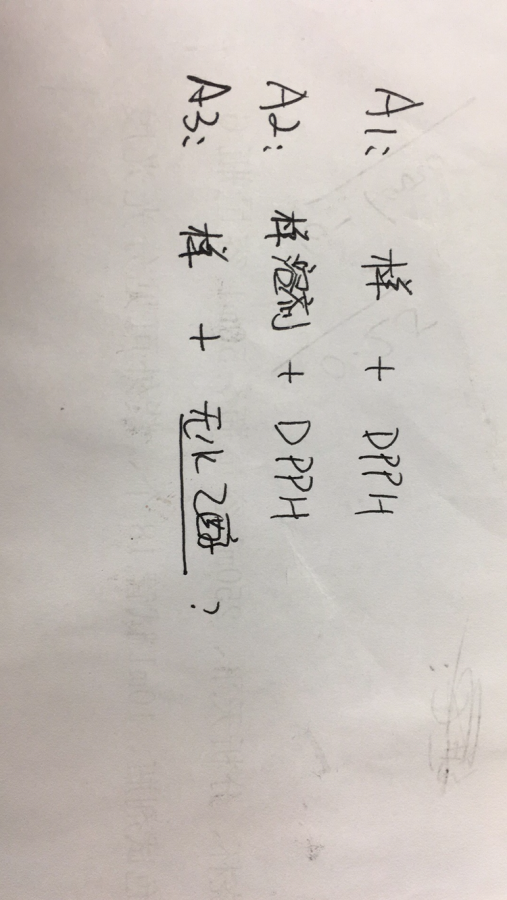 A1: 样 + DPPH
A2: 样溶剂 + DPPH
A3: 样 + 无水乙醇;